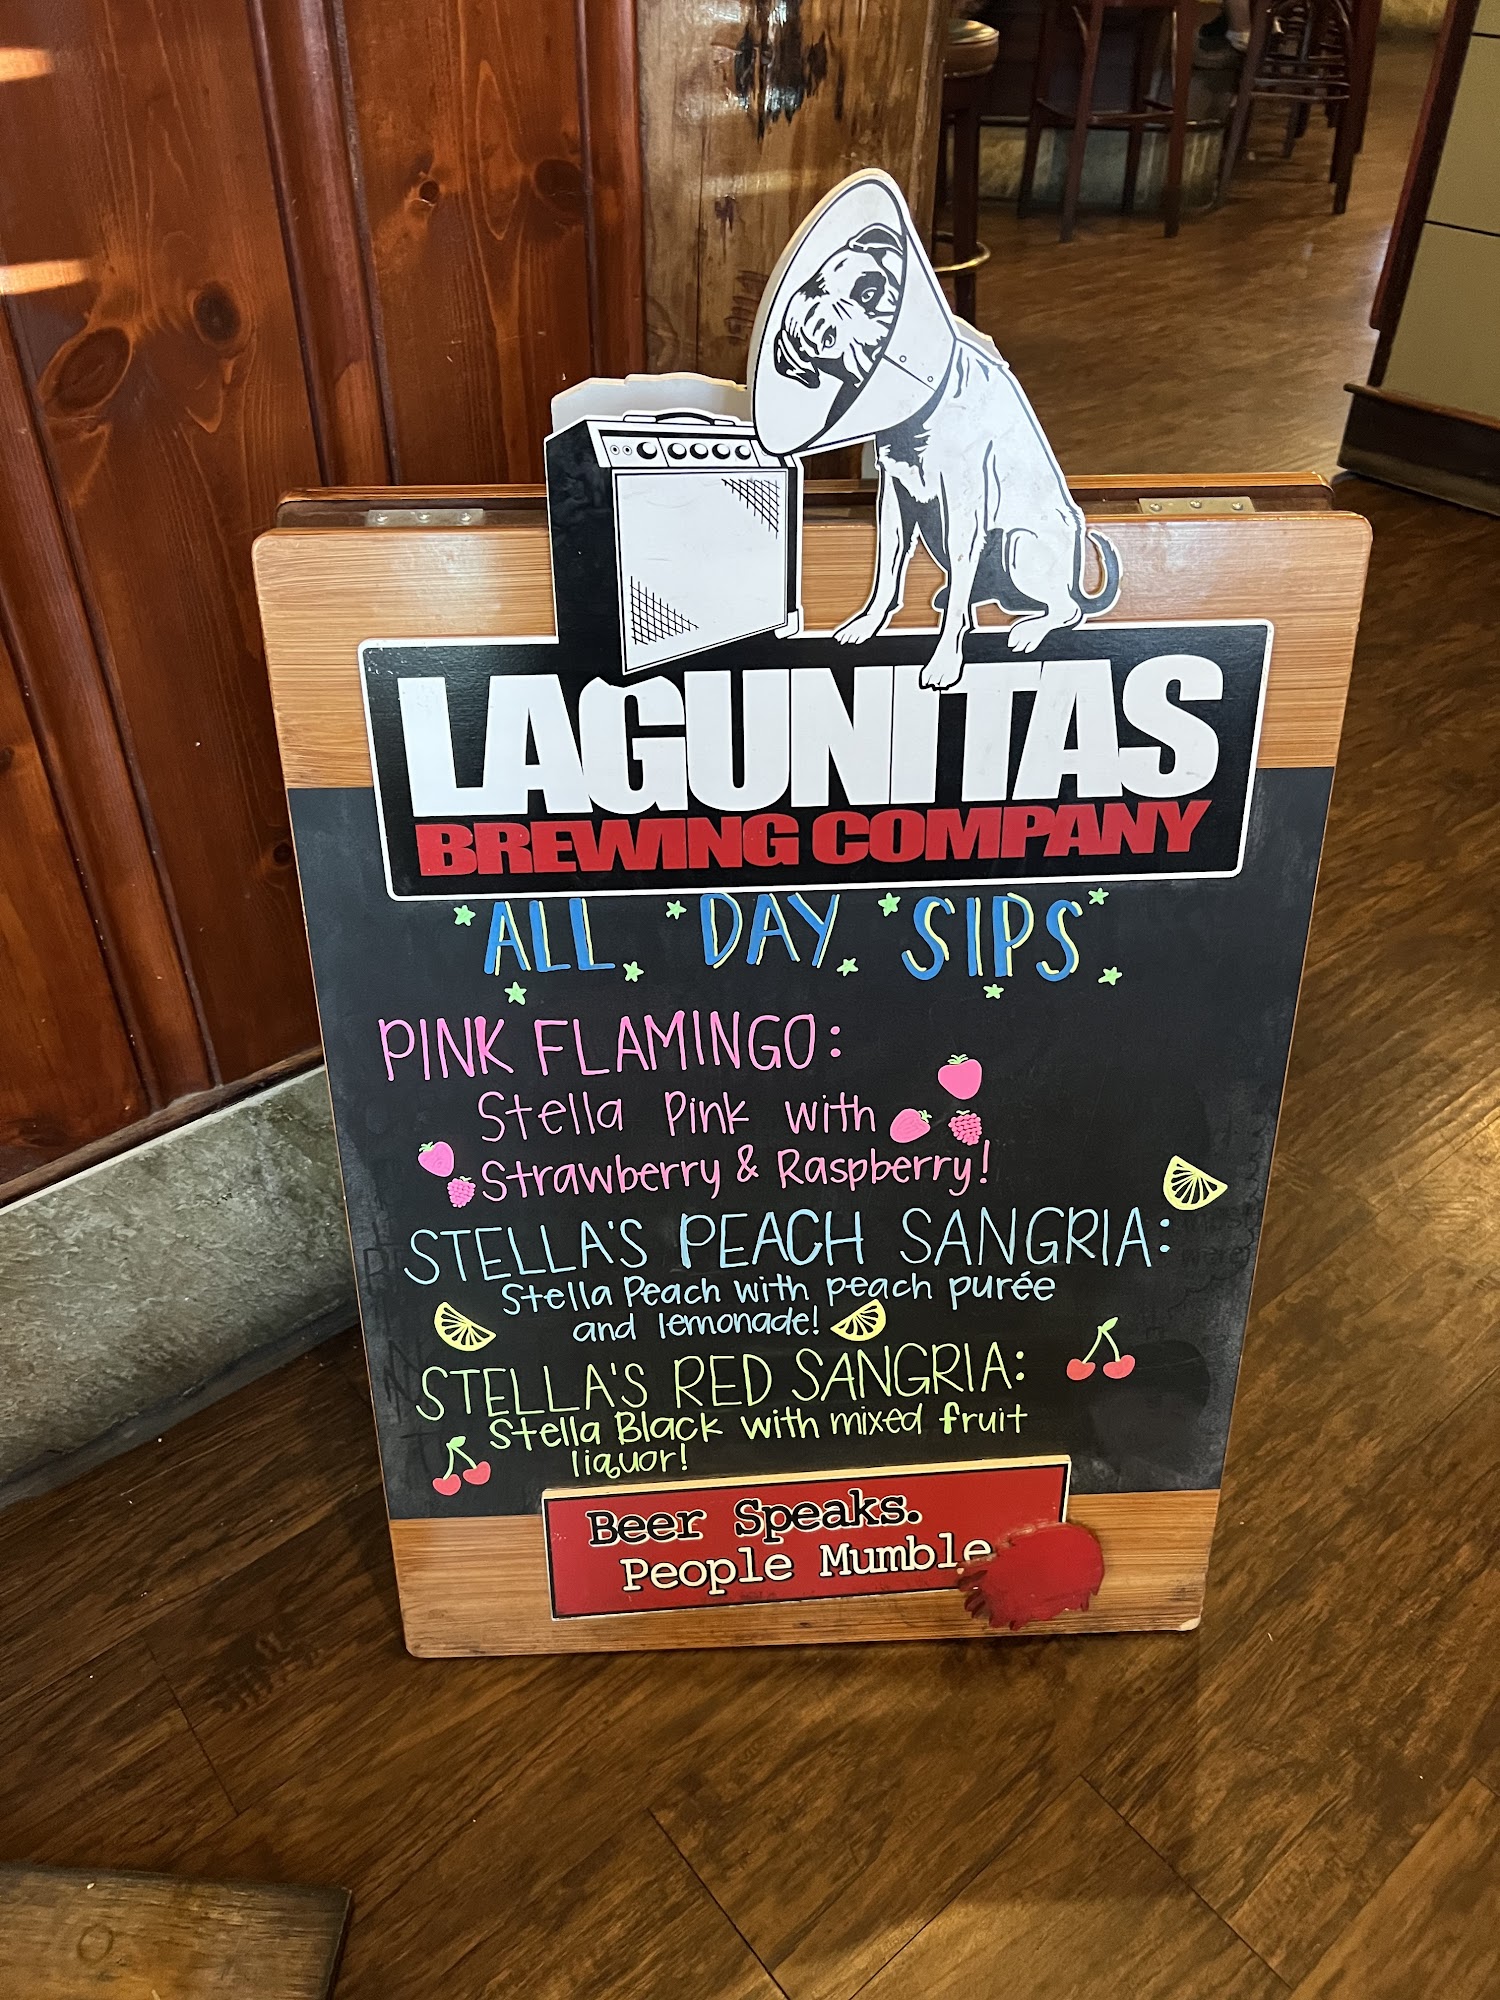 LAGUNITAS
BREWING COMPANY
ALL DAY SIPS
PINK FLAMINGO:
Stella Pink with
Strawberry & Raspberry!
STELLA'S PEACH SANGRIA:
Stella Peach with peach purée
and lemonade!
STELLA'S RED SANGRIA:
Stella Black with mixed fruit
liquor!
Beer Speaks.
People Mumble